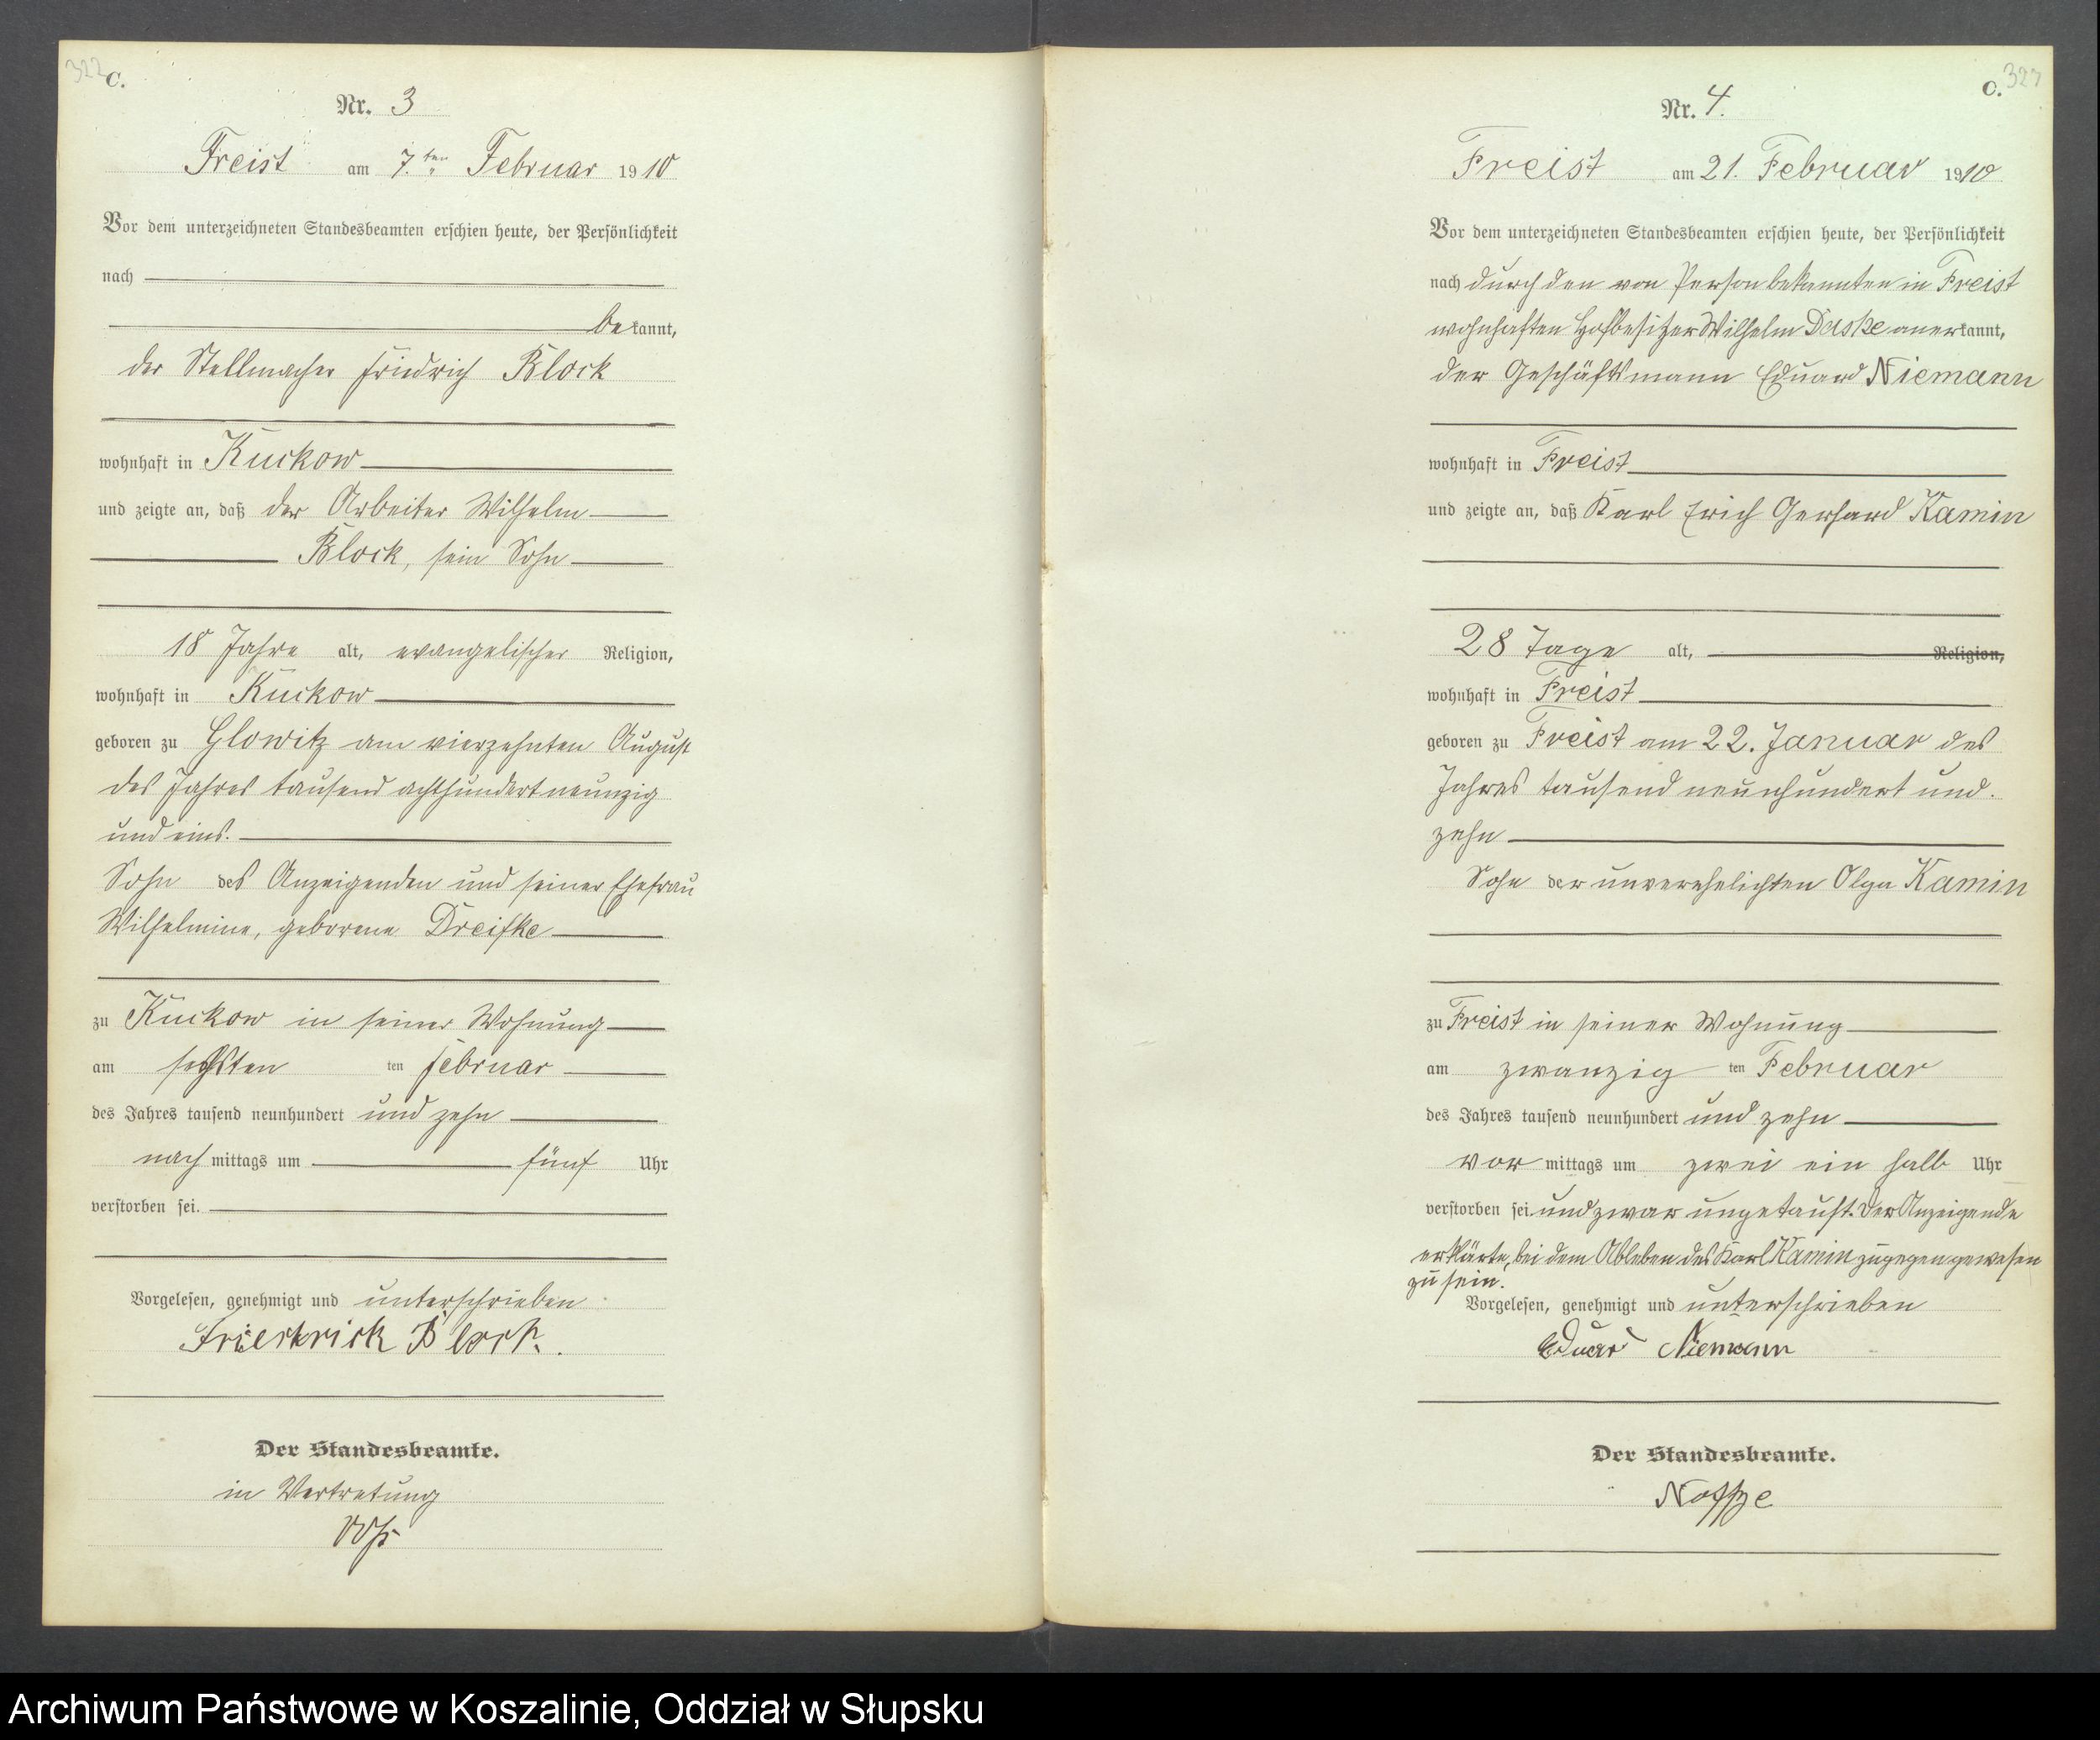 322
C.
Nr. 3
Freist am 7.ten Februar 1910
Vor dem unterzeichneten Standesbeamten erschien heute, der Persönlichkeit
nach
bekannt,
der Stellmacher Friedrich Block
wohnhaft in Kuckow
und zeigte an, daß der Arbeiter Wilhelm
Block, sein Sohn
18 Jahre alt, evangelischer Religion,
wohnhaft in Kuckow
geboren zu Glowitz am vierzehnten August
des Jahres tausend achthundert neunzig
und eins.
Sohn des Anzeigenden und seiner Ehefrau
Wilhelmine, geborene Dreifke
zu Kuckow in seiner Wohnung
am sechsten ten Februar
des Jahres tausend neunhundert und zehn
nach mittags um fünf Uhr
verstorben sei.
Vorgelesen, genehmigt und unterschrieben
Friedrick Block.
Der Standesbeamte.
in Vertretung
C.
Nr. 4.
Freist am 21. Februar 1910
Vor dem unterzeichneten Standesbeamten erschien heute, der Persönlichkeit
nach durch den von Person bekannten in Freist
wohnhaften Hofbesitzer Wilhelm Daske anerkannt,
der Geschäftsmann Eduard Niemann
wohnhaft in Freist
und zeigte an, daß Karl Erich Gerhard Kamin
28 Tage alt, Religion,
wohnhaft in Freist
geboren zu Freist am 22. Januar des
Jahres tausend neunhundert und
zehn
Sohn der unverehelichten Olga Kamin
zu Freist in seiner Wohnung
am zwanzig ten Februar
des Jahres tausend neunhundert und zehn
vor mittags um zwei ein halb Uhr
verstorben sei und zwar ungetauft. Der Anzeigende
erklärte, bei dem Ableben des Karl Kamin zugegen gewesen
zu sein.
Vorgelesen, genehmigt und unterschrieben
Eduard Niemann
Der Standesbeamte.
Noffze
Archiwum Państwowe w Koszalinie, Oddział w Słupsku